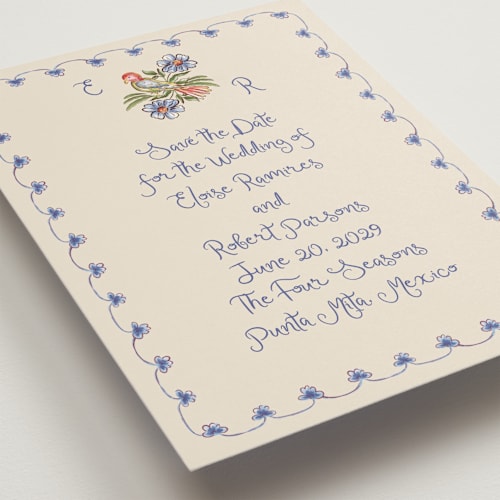 E R
Save the Date
for the Wedding of
Eloise Ramires
and
Robert Parsons
June 20, 2029
The Four Seasons
Punta Mita, Mexico